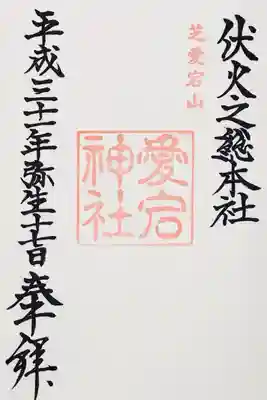 伏火之總本社
芝愛宕山
愛宕
神社
平成三十一年弥生十七日奉拝